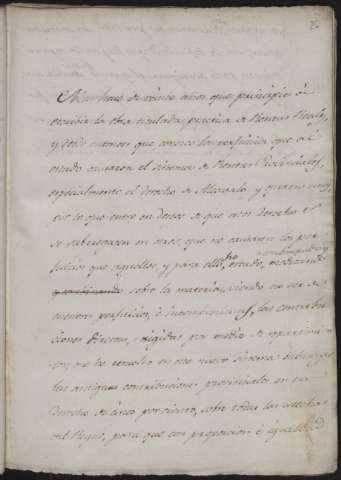 2
Mas hace de veinte años que principié á
escribir la obra titulada practica de Rentas Reales,
y desde entonces que conoci los perjuicios que al
Estado causaron el sistema de Rentas Provinciales,
especialmente el derecho de Alcavala y quatro uno
por lo que entre en deseo de que estos derechos
se subrogasen en otros, que no causaran los per
juicios que aquellos, y para ello he estado, meditando
combinando y
sobre la materia, viendo no ser de
menores perjuicios, é inconvenientes las contribu
ciones directas, exigidas por medio de repartimien
tos, me he resuelto en este nuevo sistema subrogar
las antiguas contribuciones provinciales en un
derecho de cinco por ciento, sobre todas las cosechas
del Reyno, para que con proporcion é igualdad